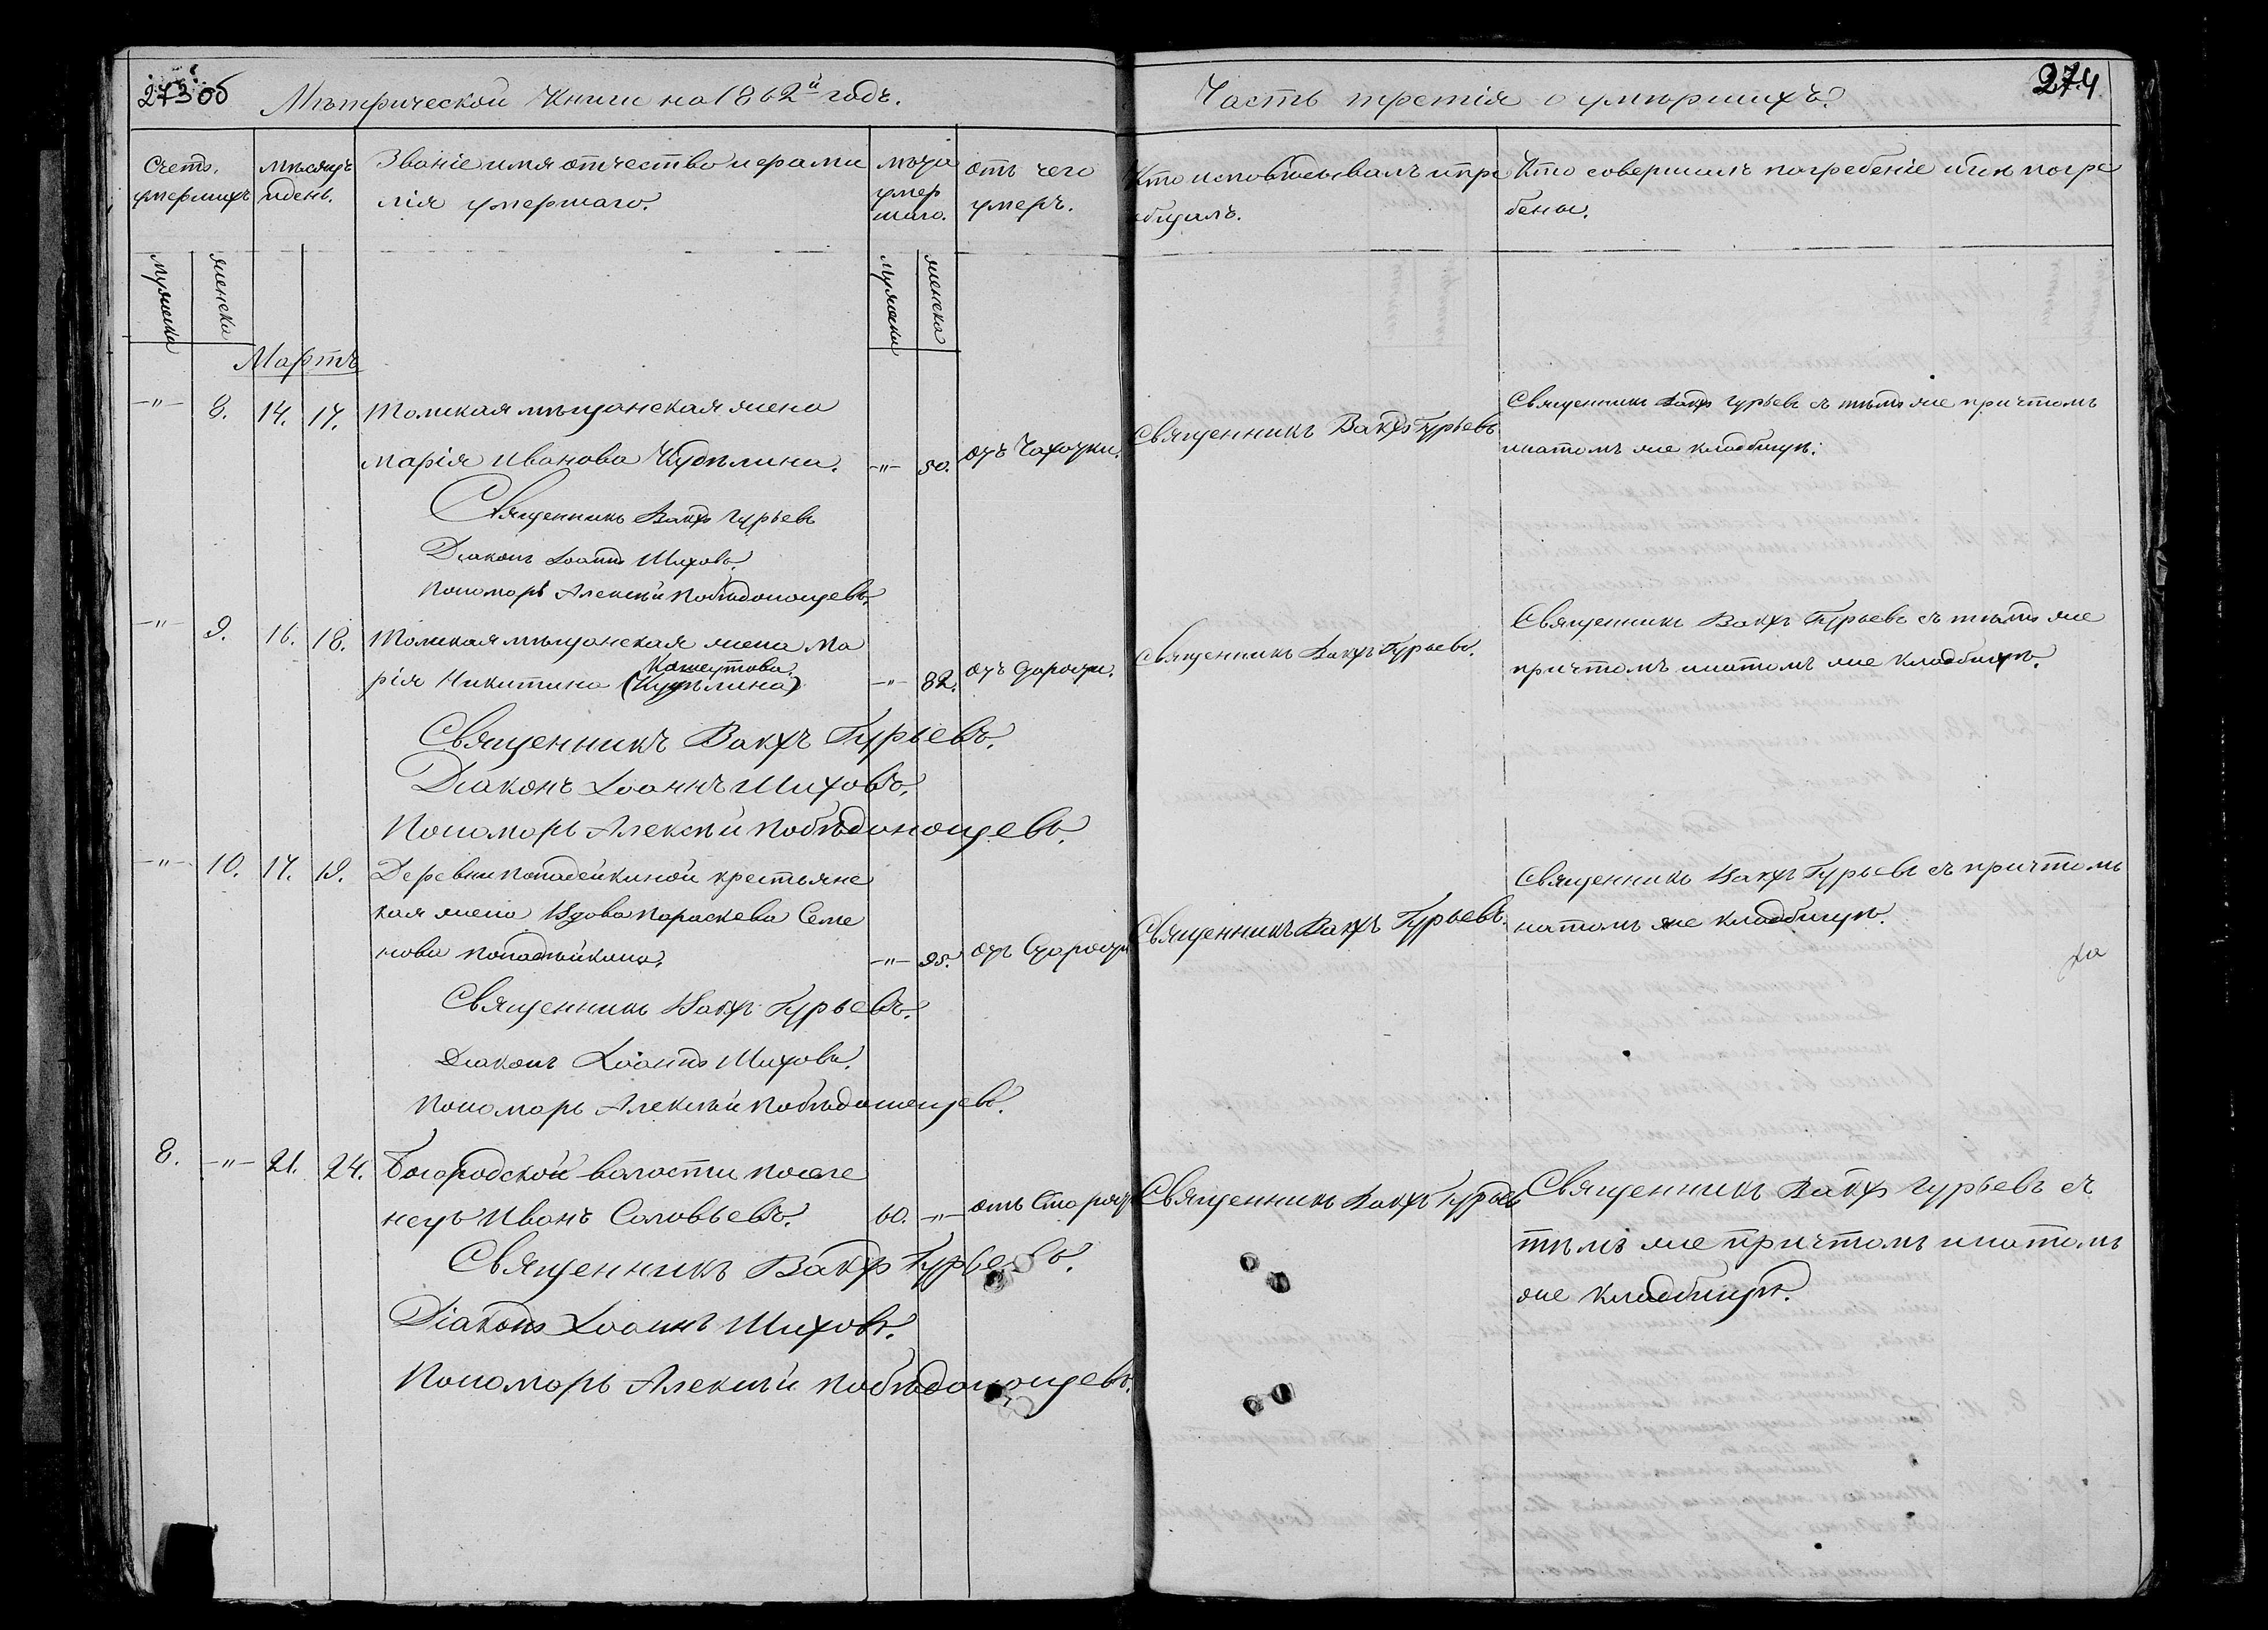 273 об
Мѣтрической Книги на 1862й годъ.
Счетъ умершихъ
мѣсяцъ и день.
Званіе имя отчество и фами
лія умершаго.
лѣта умер шаго.
отъ чего умеръ.
мужеска
женска
мужеска
женска
Мартъ
-"- 8. 14. 17. Томская мѣщанская жена
Марія Иванова -"- 50. отъ Чахотки.
Священникъ Вакхъ Гурьевъ
Діаконъ Іоаннъ Шиховъ.
Пономарь Алексѣй Побѣдоносцевъ.
-"- 9. 16. 18. Томская мѣщанская жена Ма
рія Никитина -"- 82. отъ старости.
Священникъ Вакхъ Гурьевъ.
Діаконъ Іоаннъ Шиховъ.
Пономарь Алексѣй Побѣдоносцевъ.
-"- 10. 17. 19. Деревни Попадейкиной крестьянс
кая жена вдова Параскева Семе
нова Попадѣйкина. -"- 95. отъ Старости
Священникъ Вакхъ Гурьевъ.
Діаконъ Іоаннъ Шиховъ.
Пономарь Алексѣй Побѣдоносцевъ.
8. -"- 21. 24. Богородской волости посѣле
нецъ Иванъ Соловьевъ. 60. -"- отъ Старос
Священникъ Вакхъ Гурьевъ.
Діаконъ Іоаннъ Шиховъ.
Пономарь Алексѣй Побѣдоносцевъ.
274
Часть третія о умѣршихъ.
Кто исповѣдывалъ и прі
общалъ.
Кто совершалъ погребеніе и гдѣ погре
бены.
Священникъ Вакхъ Гурьевъ
Священникъ Вакхъ Гурьевъ съ тѣмъ же причтомъ
и на томъ же кладбищѣ.
Священникъ Вакхъ Гурьевъ.
Священникъ Вакхъ Гурьевъ съ тѣмъ же
причтомъ и на томъ же кладбищѣ.
Священникъ Вакхъ Гурьевъ.
Священникъ Вакхъ Гурьевъ съ причтомъ
на томъ же кладбищѣ.
Священникъ Вакхъ Гурьевъ
Священникъ Вакхъ Гурьевъ съ
тѣмъ же причтомъ и на томъ
же кладбищѣ.